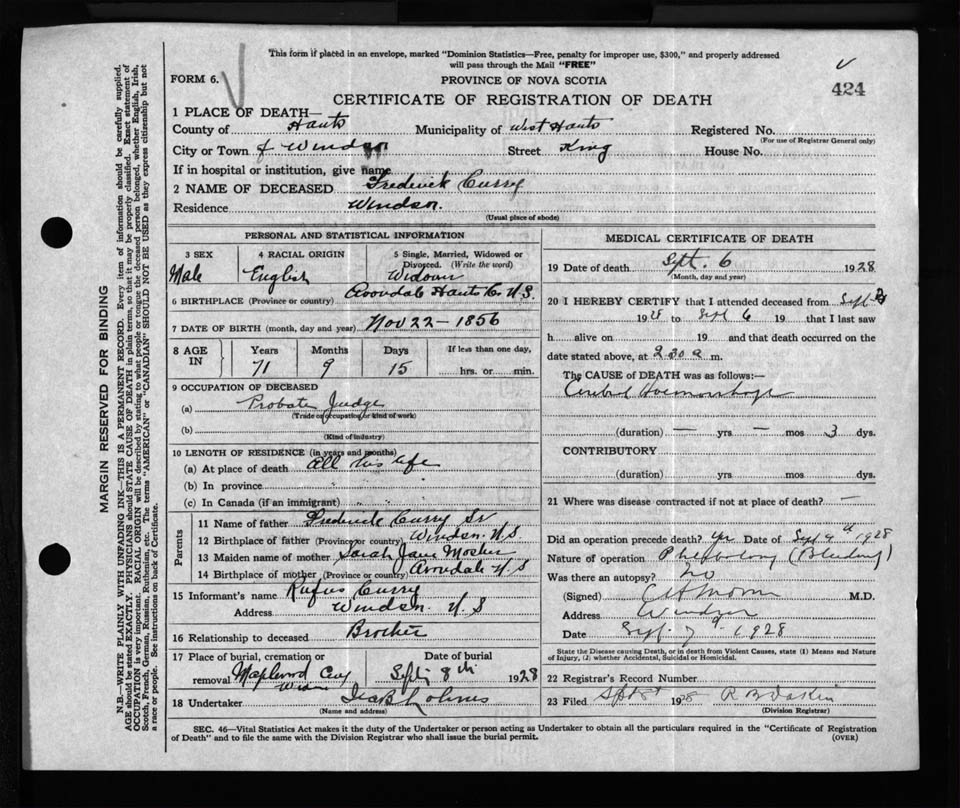 This form if placed in an envelope, marked "Dominion Statistics—Free, penalty for improper use, $300," and properly addressed
will pass through the Mail "FREE"
FORM 6.
PROVINCE OF NOVA SCOTIA
424
CERTIFICATE OF REGISTRATION OF DEATH
1 PLACE OF DEATH—
County of Hants Municipality of West Hants Registered No.
(For use of Registrar General only)
City or Town of Windsor Street King House No.
If in hospital or institution, give name
2 NAME OF DECEASED Frederick Curry
Residence Windsor.
(Usual place of abode)
PERSONAL AND STATISTICAL INFORMATION
3 SEX 4 RACIAL ORIGIN 5 Single, Married, Widowed or
Divorced. (Write the word)
Male English Widower
6 BIRTHPLACE (Province or country) Avondale Hants Co N.S.
7 DATE OF BIRTH (month, day and year) Nov 22 - 1856
8 AGE IN Years Months Days If less than one day,
71 9 15 hrs. or min.
9 OCCUPATION OF DECEASED
(a) Probate Judge
(Trade or occupation or kind of work)
(b)
(Kind of industry)
10 LENGTH OF RESIDENCE (in years and months)
(a) At place of death all his life
(b) In province " "
(c) In Canada (if an immigrant)
Parents
11 Name of father Frederick Curry Sr
12 Birthplace of father (Province or country) Windsor. N.S.
13 Maiden name of mother Sarah Jane Mosher
14 Birthplace of mother (Province or country) Avondale N S
15 Informant's name Rufus Curry
Address Windsor. N S
16 Relationship to deceased Brother
17 Place of burial, cremation or Date of burial
removal Maplewood Cey Sept 8th 1928
Windsor
18 Undertaker
(Name and address)
MEDICAL CERTIFICATE OF DEATH
19 Date of death Sept. 6 1928
(Month, day and year)
20 I HEREBY CERTIFY that I attended deceased from Sept
1928 to Sept 6 19 that I last saw
h alive on 19 and that death occurred on the
date stated above, at 2.30 a m.
The CAUSE OF DEATH was as follows:—
Cerebral Hoemorrhage
(duration) — yrs — mos 3 dys.
CONTRIBUTORY
(duration) yrs mos dys.
21 Where was disease contracted if not at place of death? —
Did an operation precede death? yes Date of Sept 4th 1928
Nature of operation Phlebotomy (Bleeding)
Was there an autopsy? no
(Signed) M.D.
Address Windsor
Date Sept. 7th 1928
State the Disease causing Death, or in death from Violent Causes, state (1) Means and Nature
of Injury, (2) whether Accidental, Suicidal or Homicidal.
22 Registrar's Record Number
23 Filed Sept 8th 1928 R B Dakin
(Division Registrar)
SEC. 46—Vital Statistics Act makes it the duty of the Undertaker or person acting as Undertaker to obtain all the particulars required in the "Certificate of Registration
of Death" and to file the same with the Division Registrar who shall issue the burial permit. (OVER)
MARGIN RESERVED FOR BINDING
N.B.—WRITE PLAINLY WITH UNFADING INK—THIS IS A PERMANENT RECORD. Every item of information should be carefully supplied.
AGE should be stated EXACTLY. PHYSICIANS should STATE CAUSE OF DEATH in plain terms, so that it may be properly classified. Exact statement of
OCCUPATION is very important. RACIAL ORIGIN will be described by stating to what people or tongue the deceased person belonged, whether English, Irish,
Scotch, French, German, Russian, Ruthenian, etc. The terms "AMERICAN" or "CANADIAN" SHOULD NOT BE USED as they express citizenship but not
a race or people. See instructions on back of Certificate.